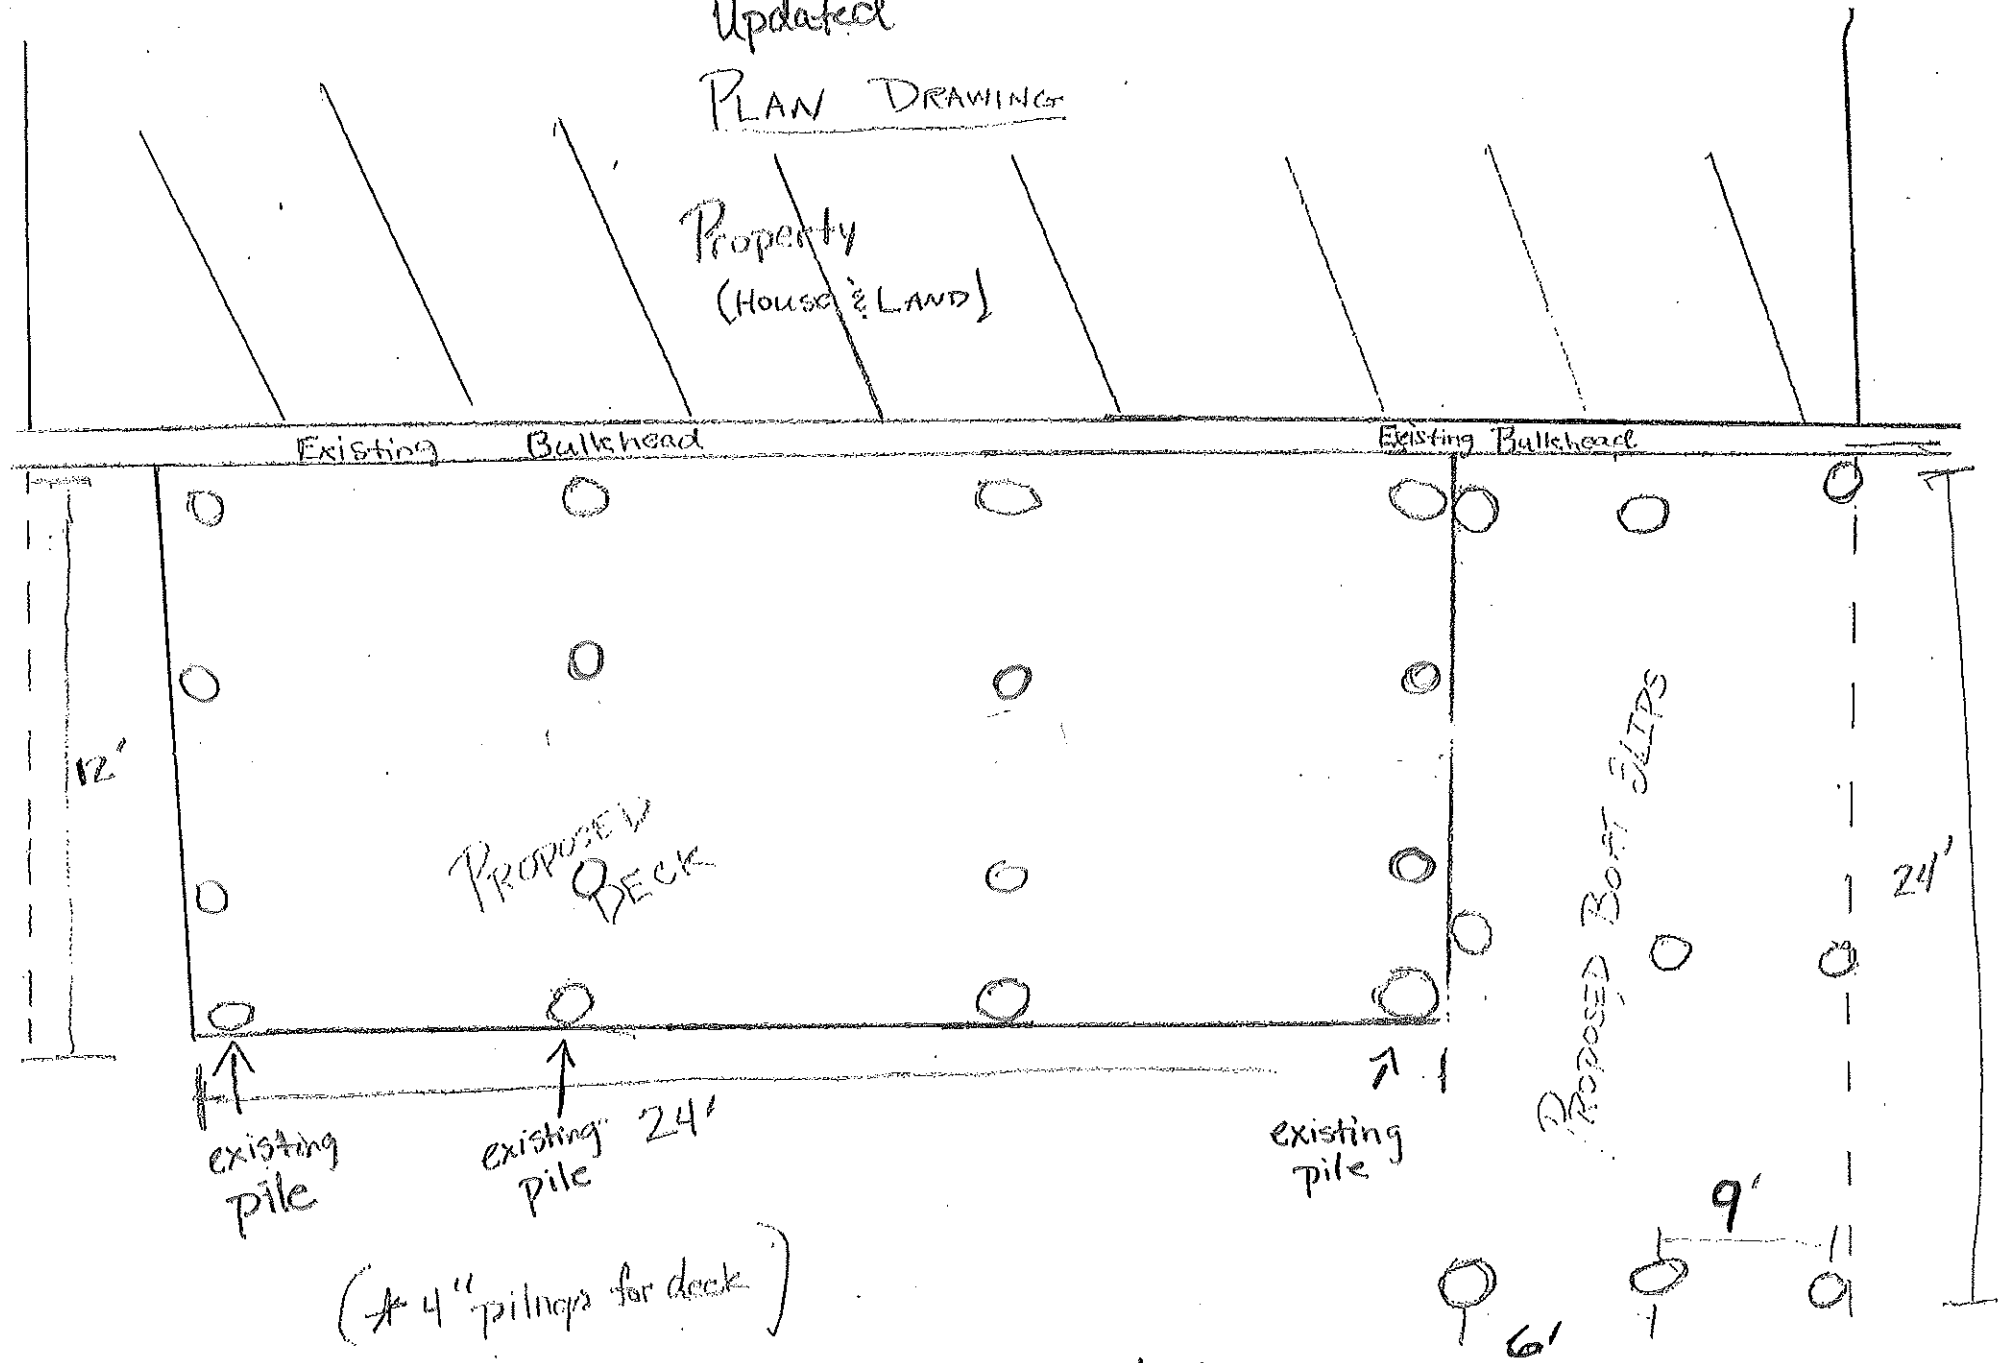 Updated
PLAN DRAWING
Property
(HOUSE & LAND)
Existing Bulkhead
Existing Bulkhead
12'
PROPOSED
DECK
PROPOSED BOAT SLIPS
24'
existing
pile
existing
pile
24'
existing
pile
9'
(* 4" pilings for deck)
6'